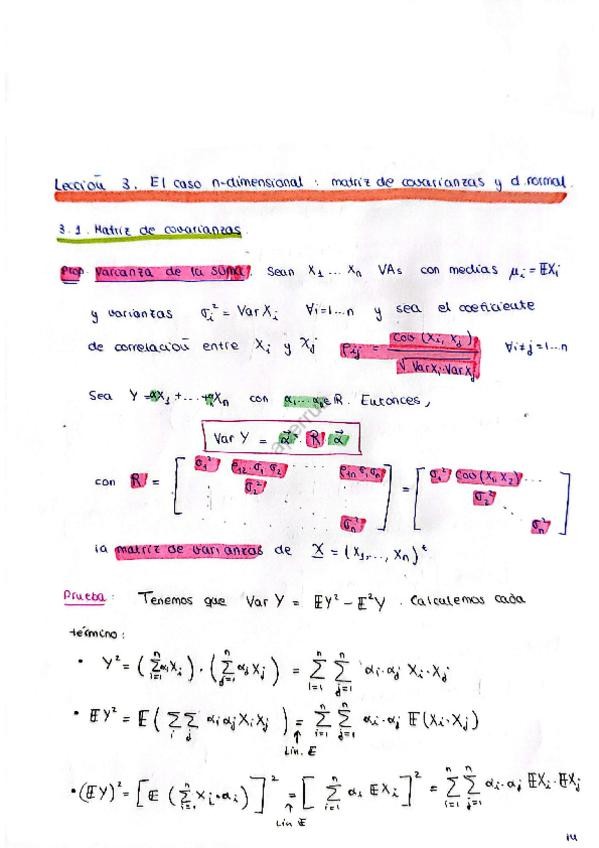 Lección 3. El caso n-dimensional: matriz de covarianzas y d. normal.
3.1. Matriz de covarianzas.
Prop. Varianza de la suma. Sean X₁ ... Xₙ VAs con medias μᵢ = 𝔼Xᵢ
y varianzas σᵢ² = Var Xᵢ ∀i=1...n y sea el coeficiente
de correlación entre Xᵢ y Xⱼ ρᵢⱼ = Cov(Xᵢ, Xⱼ) / √(Var Xᵢ · Var Xⱼ) ∀i≠j=1...n
Sea Y = αX₁ + ... + αXₙ con α₁...αₙ ∈ ℝ. Entonces,
Var Y = α⃗ · R · α⃗
con R = [ σ₁² ρ₁₂·σ₁σ₂ ... ρ₁ₙσ₁σₙ σ₂² ... σₙ² ] = [ σ₁² Cov(X₁,X₂) ... σ₂² ... σₙ² ]
la matriz de varianzas de X = (X₁, ..., Xₙ)ᵗ.
Prueba: Tenemos que Var Y = 𝔼Y² − 𝔼²Y. Calculemos cada
término:
• Y² = (∑ᵢ₌₁ⁿ αᵢXᵢ) · (∑ⱼ₌₁ⁿ αⱼXⱼ) = ∑ᵢ₌₁ⁿ ∑ⱼ₌₁ⁿ αᵢ·αⱼ Xᵢ·Xⱼ
• 𝔼Y² = 𝔼(∑ᵢ ∑ⱼ αᵢαⱼXᵢXⱼ) = ∑ᵢ₌₁ⁿ ∑ⱼ₌₁ⁿ αᵢ·αⱼ 𝔼(Xᵢ·Xⱼ)
↑
Lin. 𝔼
• (𝔼Y)² = [𝔼(∑ᵢ₌₁ⁿ Xᵢ·αᵢ)]² = [∑ᵢ₌₁ⁿ αᵢ 𝔼Xᵢ]² = ∑ᵢ₌₁ⁿ ∑ⱼ₌₁ⁿ αᵢ·αⱼ 𝔼Xᵢ·𝔼Xⱼ
↑
Lin 𝔼
14